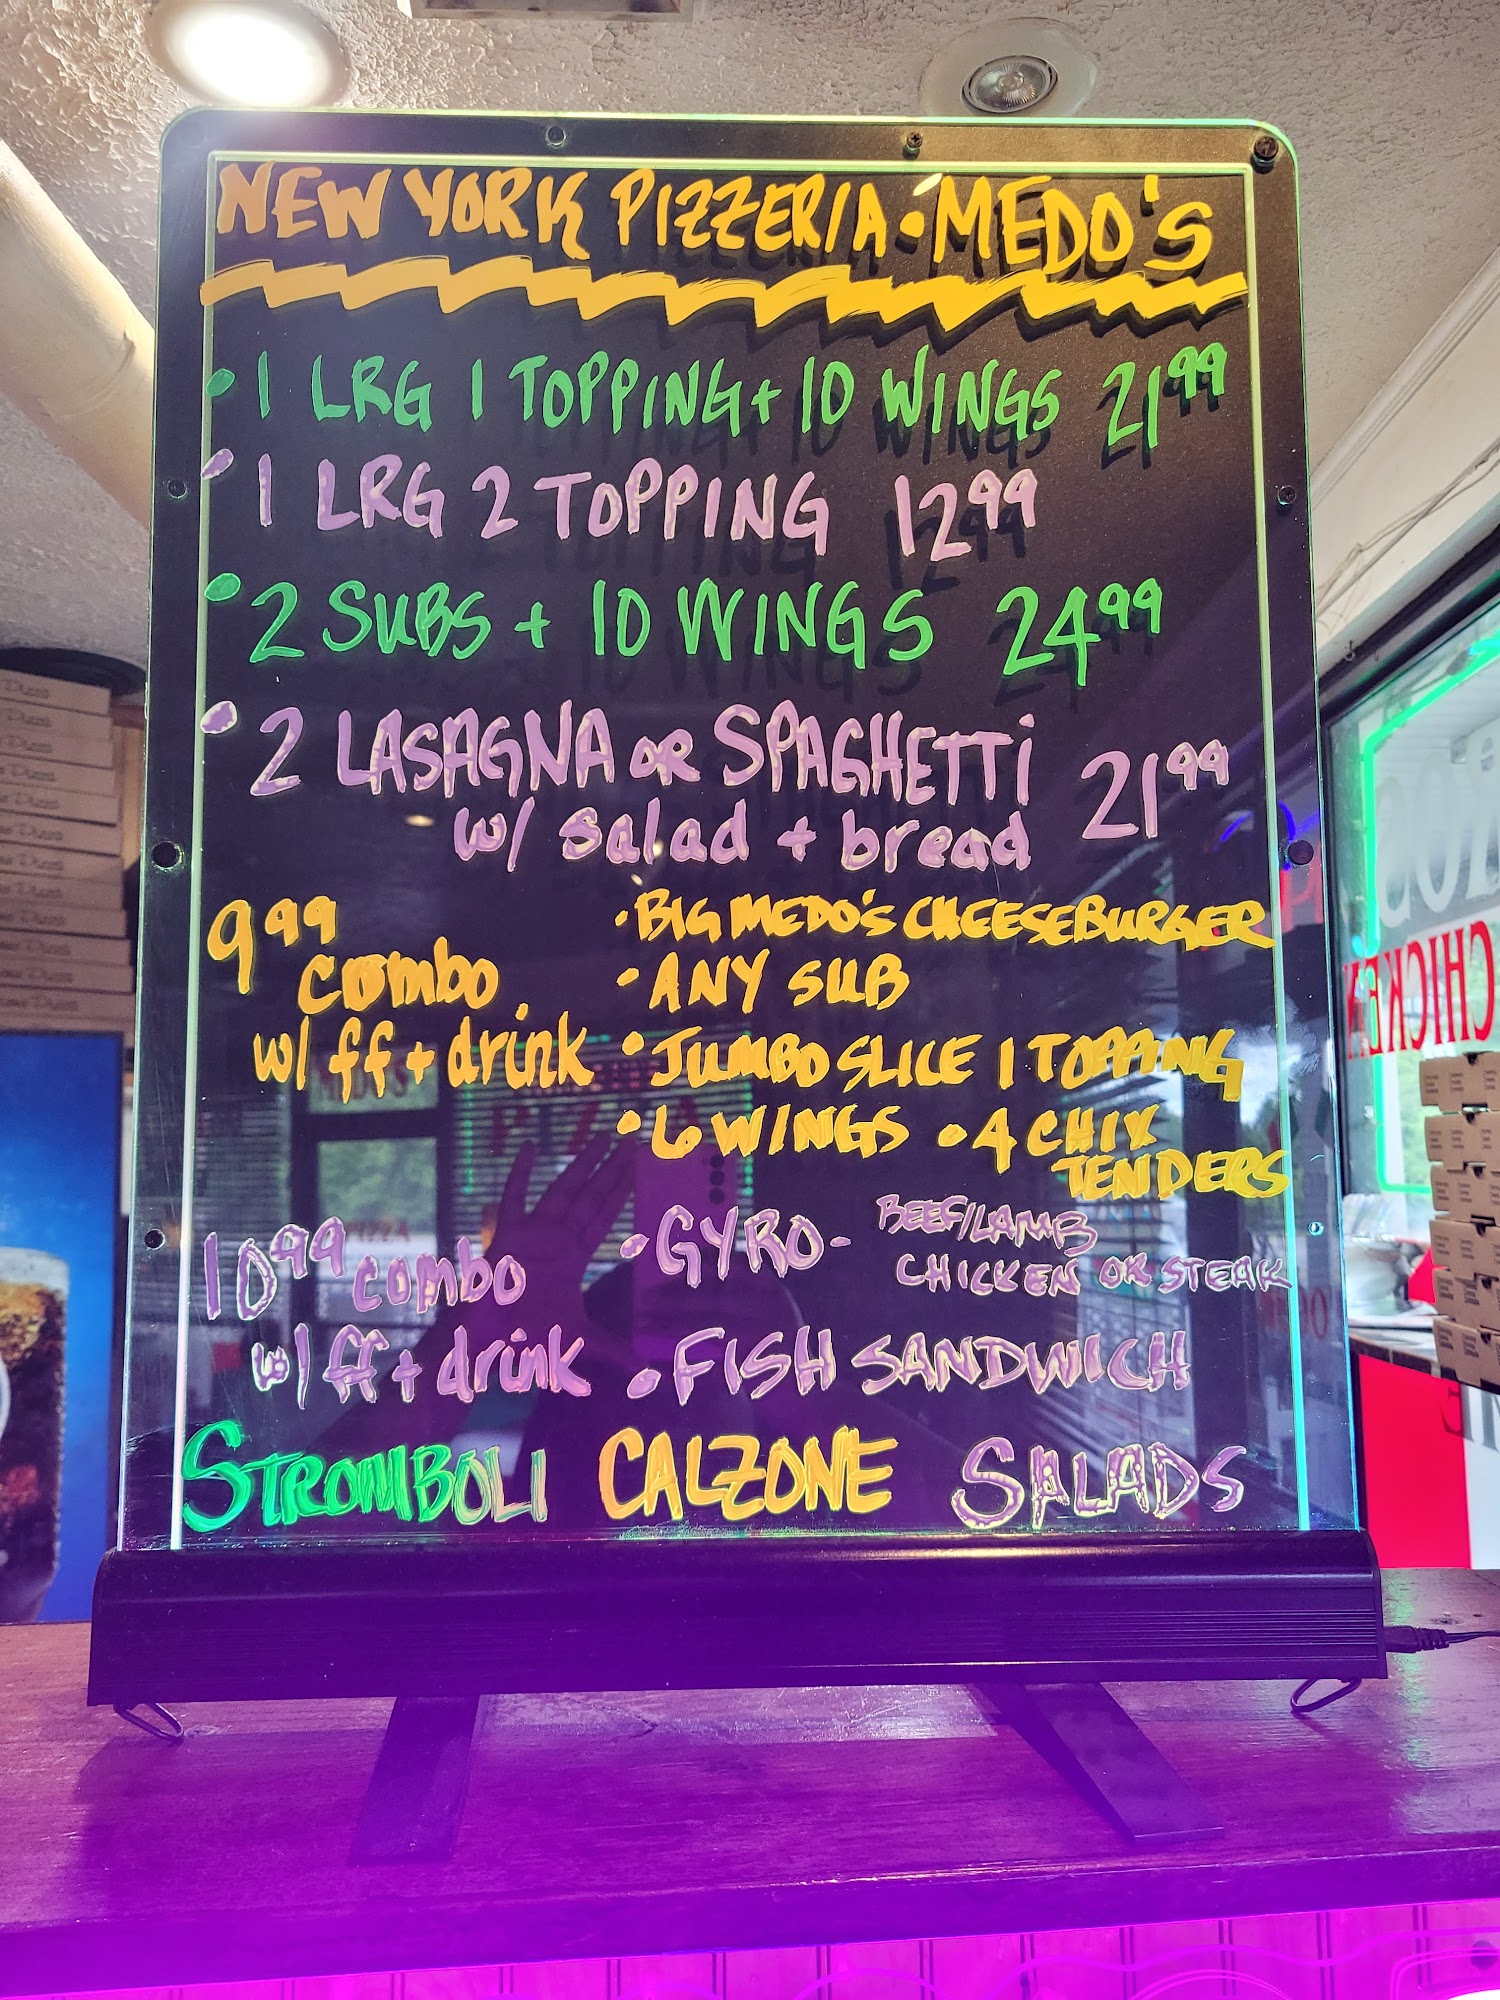 NEW YORK PIZZERIA • MEDO'S
• 1 LRG 1 TOPPING + 10 WINGS 21.99
• 1 LRG 2 TOPPING 12.99
• 2 SUBS + 10 WINGS 24.99
• 2 LASAGNA OR SPAGHETTi 21.99
w/ salad + bread
9.99 combo
w/ ff + drink
• BIG MEDO'S CHEESEBURGER
• ANY SUB
• JUMBO SLICE 1 TOPPING
• 6 WINGS • 4 CHIX TENDERS
10.99 combo
w/ ff + drink
• GYRO - BEEF/LAMB
CHICKEN OR STEAK
• FISH SANDWICH
STROMBOLI CALZONE SALADS
CHICKEN